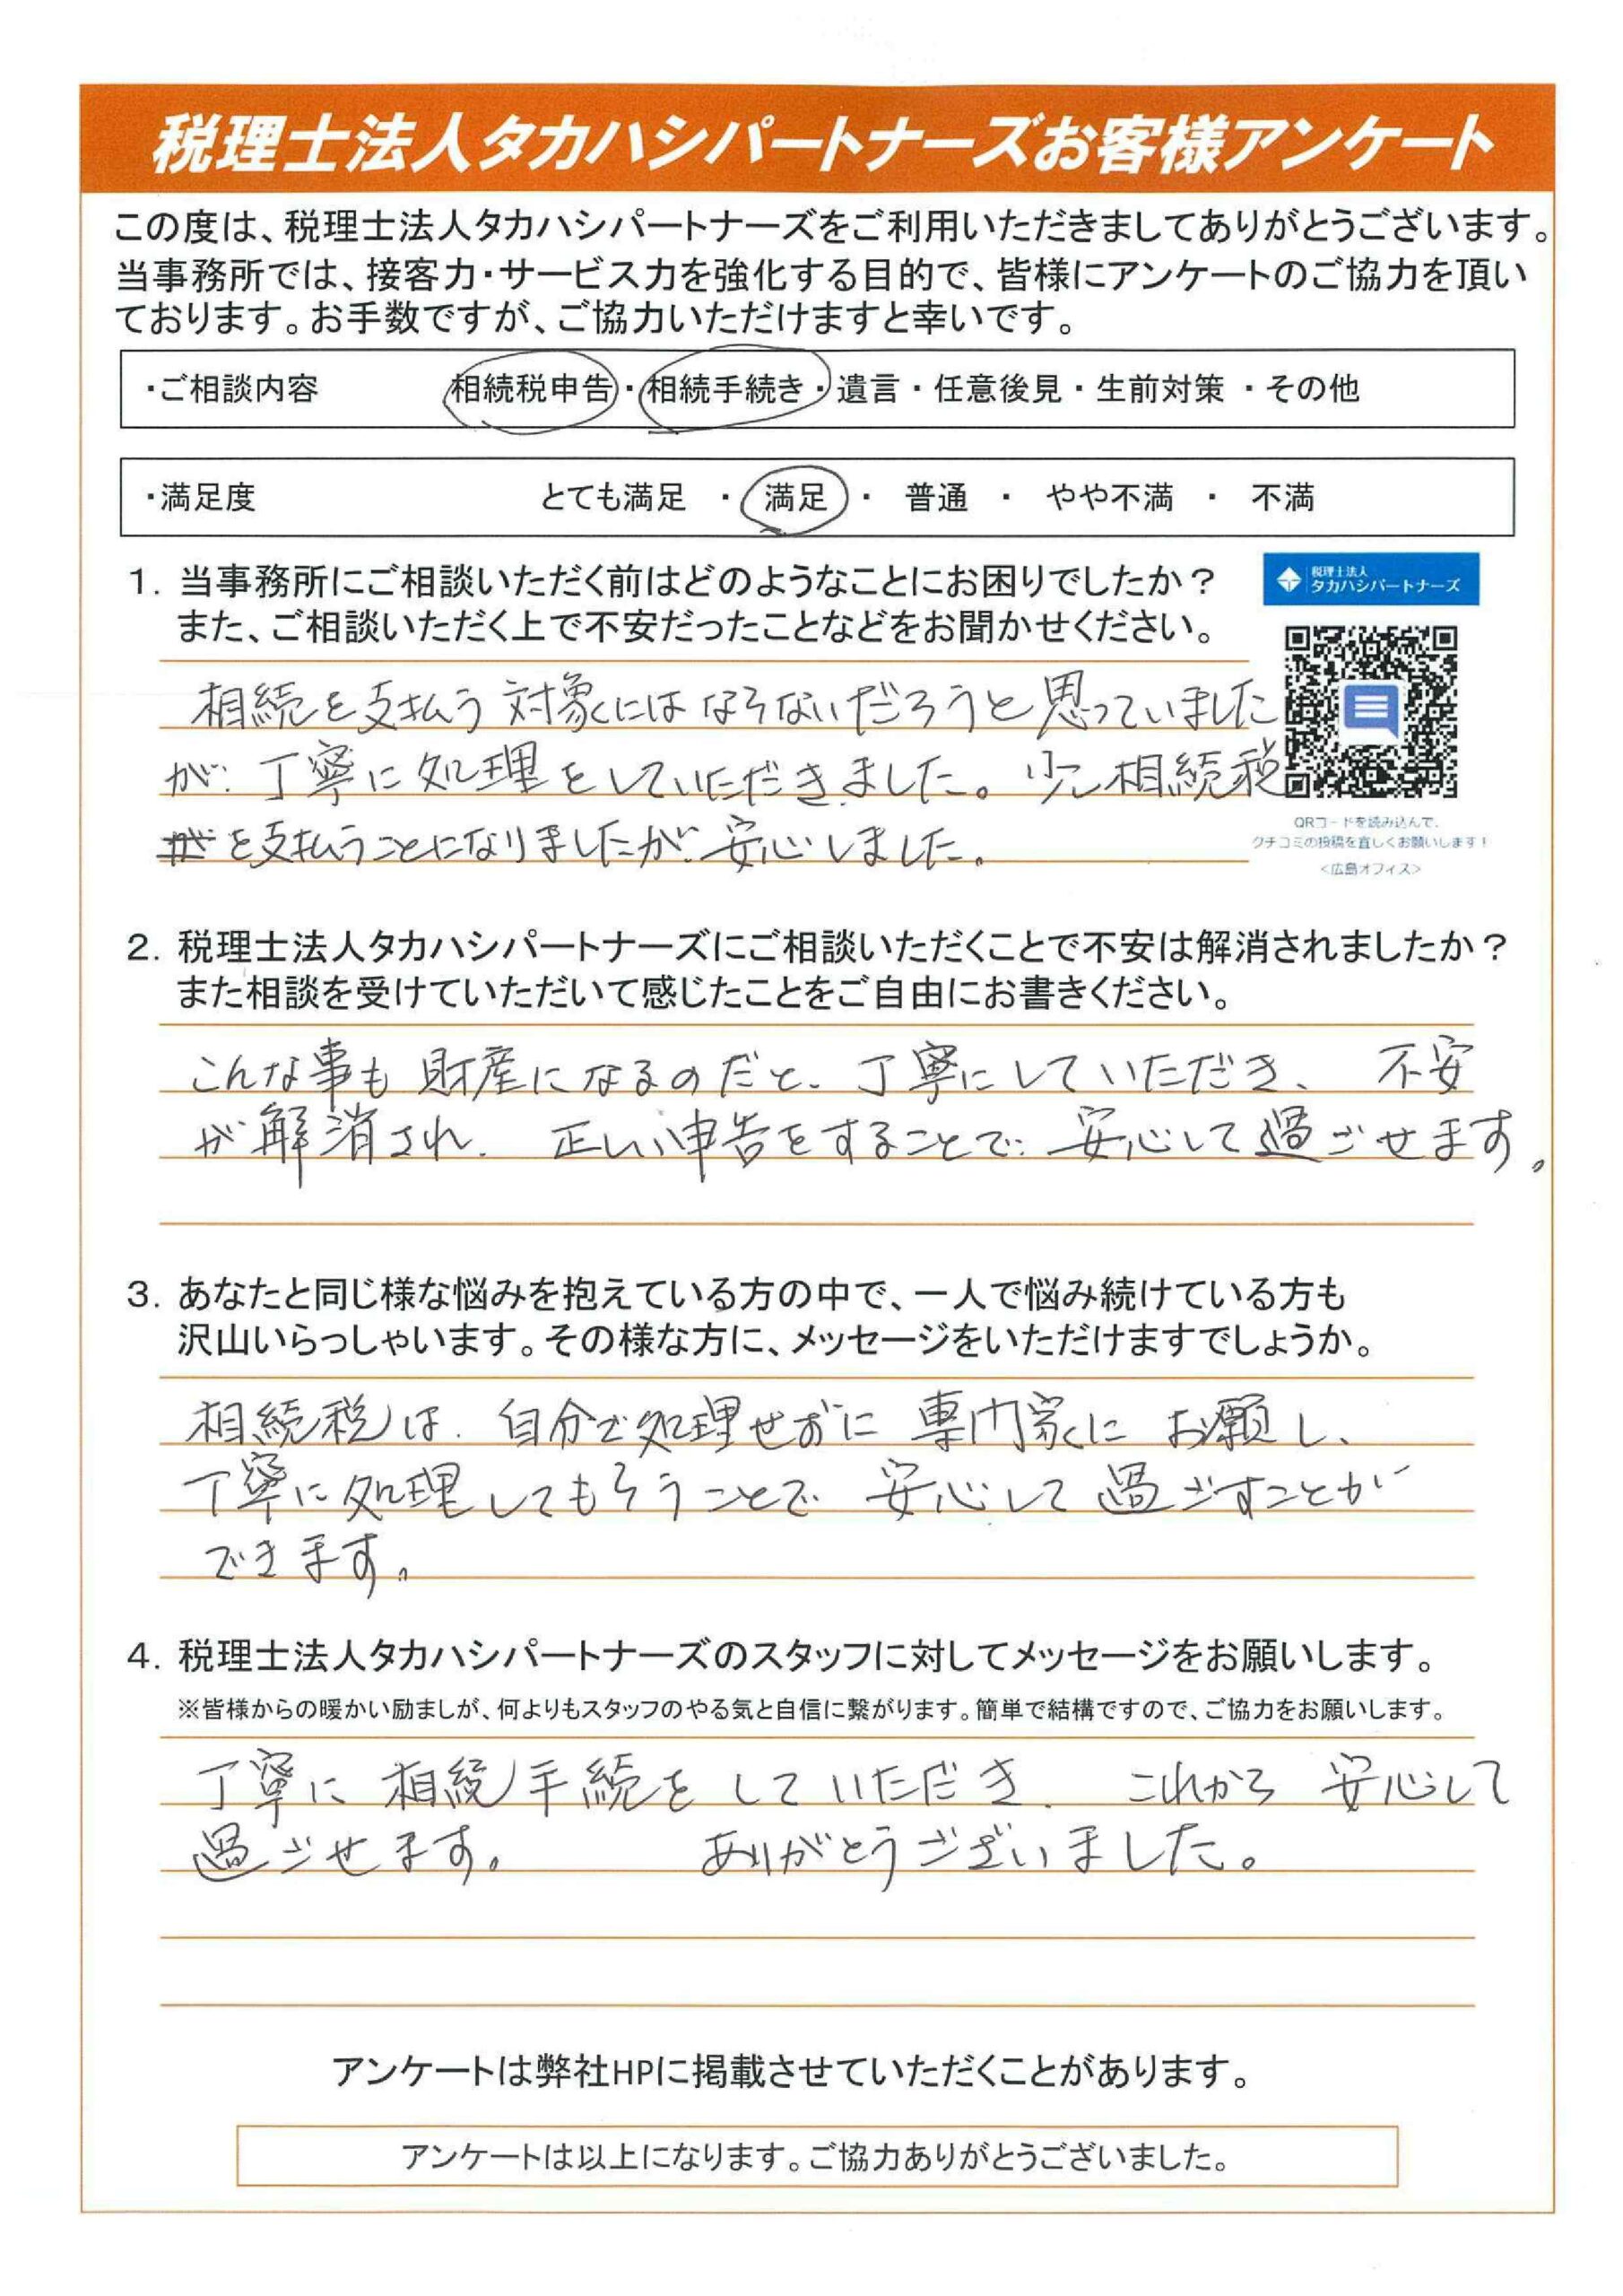 税理士法人タカハシパートナーズお客様アンケート
この度は、税理士法人タカハシパートナーズをご利用いただきましてありがとうございます。
当事務所では、接客力・サービス力を強化する目的で、皆様にアンケートのご協力を頂い
ております。お手数ですが、ご協力いただけますと幸いです。
・ご相談内容 相続税申告・相続手続き・遺言・任意後見・生前対策・その他
・満足度 とても満足 ・ 満足 ・ 普通 ・ やや不満 ・ 不満
1. 当事務所にご相談いただく前はどのようなことにお困りでしたか？
また、ご相談いただく上で不安だったことなどをお聞かせください。
税理士法人
タカハシパートナーズ
相続を支払う対象にはならないだろうと思っていました
が、丁寧に処理をしていただきました。少し相続税
を支払うことになりましたが、安心しました。
QRコードを読み込んで、
クチコミの投稿を宜しくお願いします！
＜広島オフィス＞
2. 税理士法人タカハシパートナーズにご相談いただくことで不安は解消されましたか？
また相談を受けていただいて感じたことをご自由にお書きください。
こんな事も財産になるのだと、丁寧にしていただき、不安
が解消され、正しい申告をすることで、安心して過ごせます。
3. あなたと同じ様な悩みを抱えている方の中で、一人で悩み続けている方も
沢山いらっしゃいます。その様な方に、メッセージをいただけますでしょうか。
相続税は、自分で処理せずに専門家にお願し、
丁寧に処理してもらうことで、安心して過ごすことが
できます。
4. 税理士法人タカハシパートナーズのスタッフに対してメッセージをお願いします。
※皆様からの暖かい励ましが、何よりもスタッフのやる気と自信に繋がります。簡単で結構ですので、ご協力をお願いします。
丁寧に相続手続をしていただき、これから安心して
過ごせます。 ありがとうございました。
アンケートは弊社HPに掲載させていただくことがあります。
アンケートは以上になります。ご協力ありがとうございました。